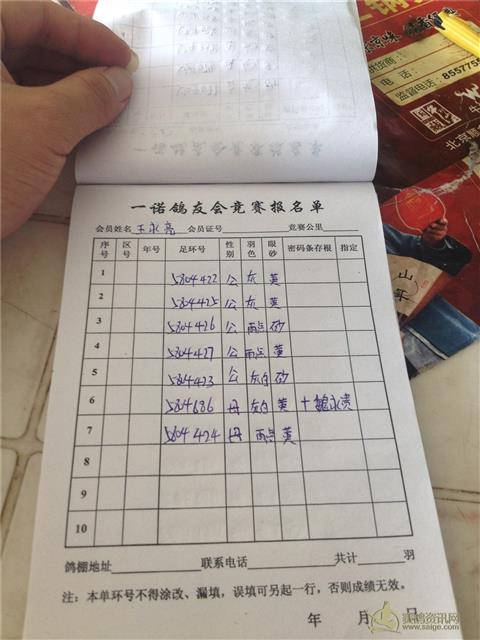 京味
供货商:
电话:
监督电话: 8557755
北京
一诺鸽友会竞赛报名单
会员姓名 王永亮 会员证号 竞赛公里
序号 区号 年号 足环号 性别 羽色 眼砂 密码条存根 指定
1 5804422 公 灰 黄
2 5804425 公 灰 黄
3 5804426 公 雨点 砂
4 5804427 公 雨点 黄
5 5804423 公 灰白 砂
6 5804686 母 灰白 黄 十魏永贵
7 5804424 母 雨点 黄
8
9
10
鸽棚地址 联系电话 共计 羽
注:本单环号不得涂改、漏填,误填可另起一行,否则成绩无效。
年 月 日
赛鸽资讯网
www.saige.com